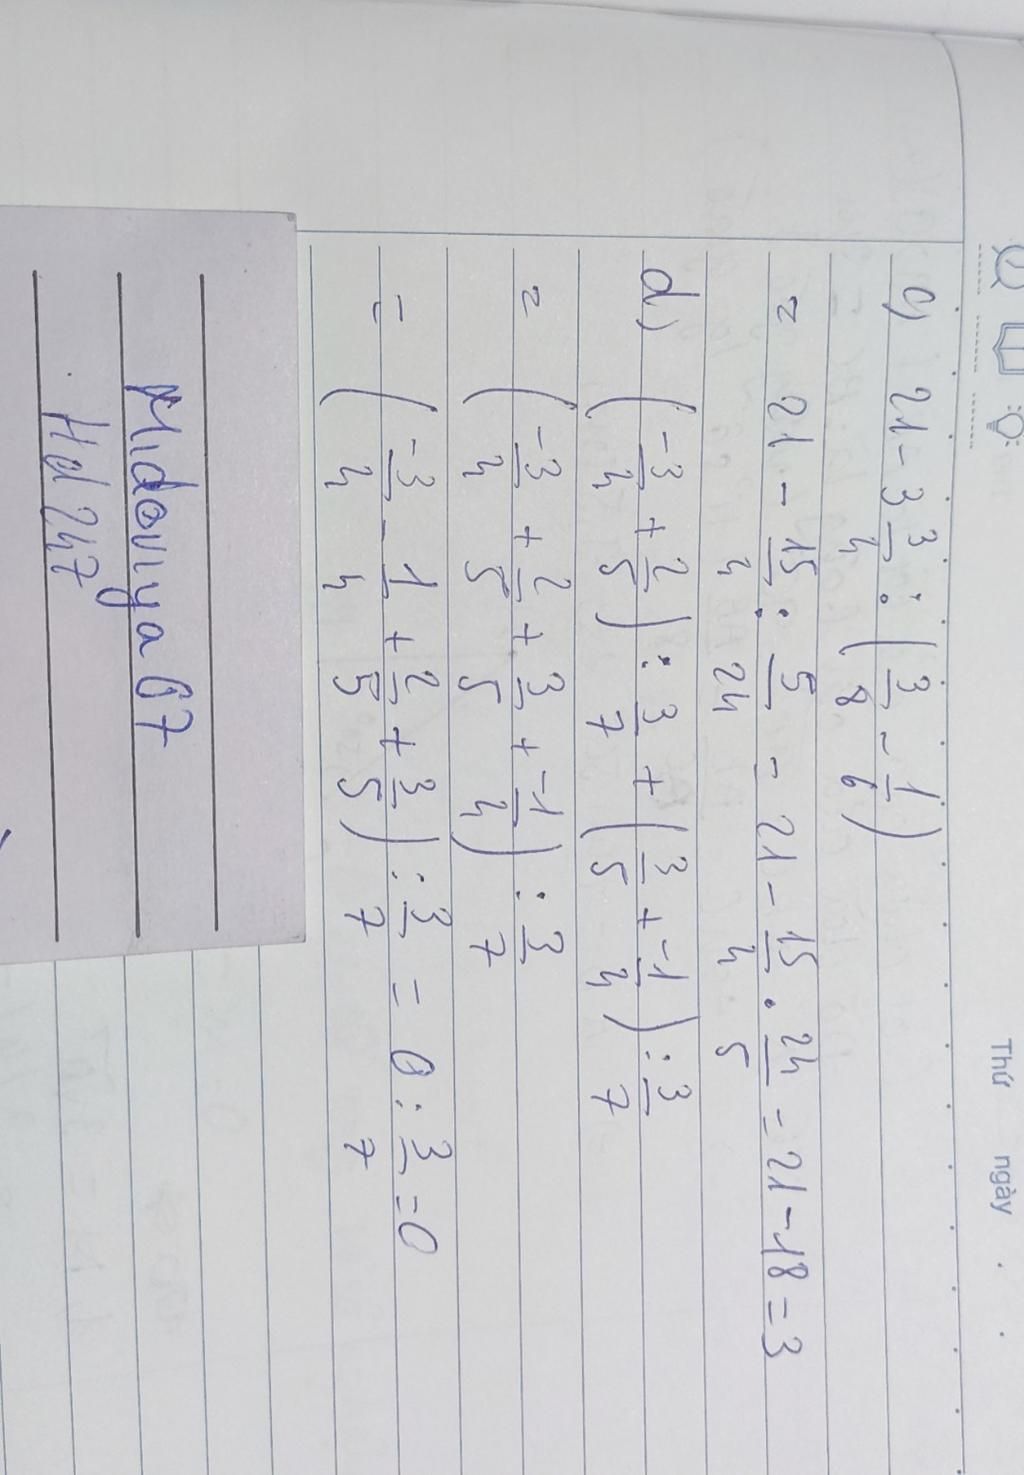 Thứ ngày
c) 21 - 3 3/4 : (3/8 - 1/6)
= 21 - 15/4 : 5/24 = 21 - 15/4 . 24/5 = 21 - 18 = 3
d) (-3/4 + 2/5) : 3/7 + (3/5 + -1/4) : 3/7
= (-3/4 + 2/5 + 3/5 + -1/4) : 3/7
= (-3/4 - 1/4 + 2/5 + 3/5) : 3/7 = 0 : 3/7 = 0
Midoriya67
Hd247